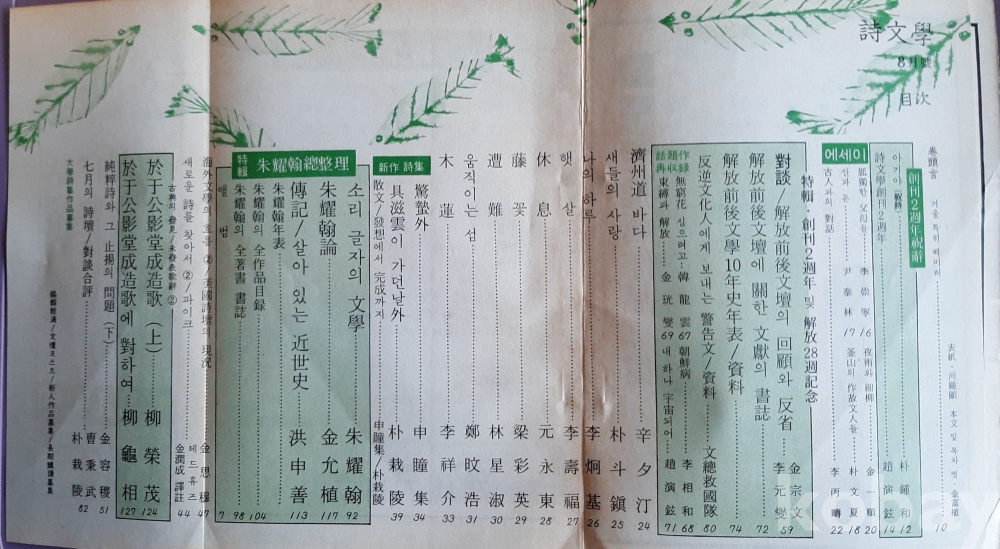 詩文學
8月號
目次
卷頭言 10
表紙·河鍾顯 本文 및 목차 컷·金當植
創刊2週年祝辭
아가야(祝詩) 朴鍾和 12
詩文學創刊2週年 趙演鉉 14
에세이
孤獨한 父母들 李崇寧 16
산과 돈 尹泰林 17
古人과의 對話 金一順 20
夜雨와 細柳 朴文夏 18
釜山의 作故文人들 李丙疇 22
特輯·創刊2週年 및 解放28週記念
對談/解放前後文壇의 回顧와 反省 金宗文 李元燮 59
解放前後文壇에 關한 文獻의 書誌 72
解放前後文學10年史年表/資料 74
反逆文化人에게 보내는 警告文/資料 文總救國隊 80
話題作再收錄
無窮花 심으려고 韓龍雲 67
朝鮮病 李相和 68
束縛과 解放 金珖燮 69
내 하나 宇宙되어 趙演鉉 71
濟州道 바다 辛夕汀 24
새들의 사랑 朴斗鎭 25
나의 하루 李炯基 26
햇살 李壽福 27
休息 元永東 28
藤꽃 梁彩英 29
遭難 林星淑 30
움직이는 섬 鄭旼浩 31
木蓮 李祥介 33
新作 詩集
驚蟄外 申瞳集 34
具滋雲이 가던날外 朴栽陵 39
散文/發想에서 完成까지 申瞳集/朴栽陵
特輯 朱耀翰總整理
소리 글자의 文學 朱耀翰 92
朱耀翰論 金允植 117
傳記/살아 있는 近世史 洪申善 113
朱耀翰年表
朱耀翰의 全作品目錄 104
朱耀翰의 全著書 書誌 98
앨범 7
海外文學의 흐름 ②/美國詩壇의 現況 金思穆 47
새로운 詩를 찾아서 ②/파이크 테드 휴즈 金潤成 譯註 44
古典의 發見/未發表歌辭 ②
於于公影堂成造歌 (上) 柳榮茂 124
於于公影堂成造歌에 對하여 柳龜相 127
純粹詩와 그 止揚의 問題 (下) 金容稷 51
七月의 詩壇/對談合評 曺秉武 朴栽陵 82
大學詩集作品募集
編輯餘滴/文壇포스트/新人作品募集/長期購讀募集